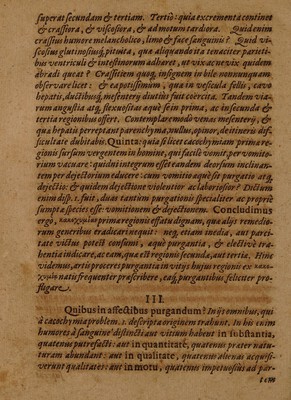 superat secundam & tertiam. Tertiò: quia excrementa continet
& crassiora, & viscosiora, & ad motum tardiora. Quid enim
crassius humore melancholico, limo & face sanguinis? Quid vi-
scosius glutinosiusq; pituita, quæ aliquando ita tenaciter parieti-
bus ventriculi & intestinorum adhæret, ut vix ac ne vix quidem
abradi queat? Crassitiem quoq, insignem in bile nonnunquam
observare licet: & tum in vesicula fellis, cavo
hepatis, ductibusq, mesenterij diutius fuit coërcita. Tandem via-
rum angustia atq, flexuositas aquè se in prima, ac in secunda &
tertia regionibus offert. Contemplare modò venas mesenterij, &
quæ hepatis perreptant parenchyma, nullus, opinor, de itineris dif-
ficultate dubitabit. Quinta: quia si licet cacochymiam prima re-
gionis sursum vergentem in homine, qui facilè vomit, per vomito-
rium vacuare: quid ni integrum esset eandem deorsum inclinan-
tem per dejectorium educere: cum vomitio aquè sit purgatio atq,
dejectio: & quidem dejectione violentior ac laboriosior? Dictum
enim disp. 1. fuit, duas tantum purgationis specialiter ac propriè
sumpta species esse: vomitionem & dejectionem. Concludimus
ergò, prima regionis affectu dignam, qua alijs remedio-
rum generibus eradicari nequit: neq, etiam inedia, aut pari-
tate victus potest consumi, aquè purgantia, & electivè tra-
hentia indicare, ac eam, qua est regionis secunda, aut tertia. Hinc
videmus, artis proceres purgantia in vitijs hujus regionis ex
natu frequenter præscribere, eaq, purgantibus feliciter pro-
fligare.
III.
Quibus in affectibus purgandum? In ijs omnibus, qui
à cacochymia problem. 1. descripta originem trahunt. In his enim
humores à sanguine distincti aut vitium habent in substantia,
quatenus putrefacti: aut in quantitate, quatenus præter natu-
ram abundant: aut in qualitate, quatenus alienas acquisi-
verunt qualitates: aut in motu, quatenus impetuosius ad par-